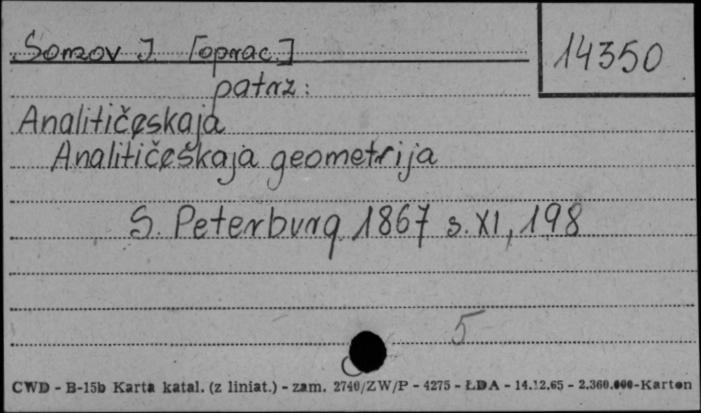 Somov J. [oprac.]
14350
patrz:
Analitičeskaja
Analitičeskaja geometrija
S. Peterburg 1867 s. XI, 198
5
CWD - B-15b Karta katal. (z liniat.) - zam. 2740/ZW/P - 4275 - ŁDA - 14.12.65 - 2.360.000-Karton